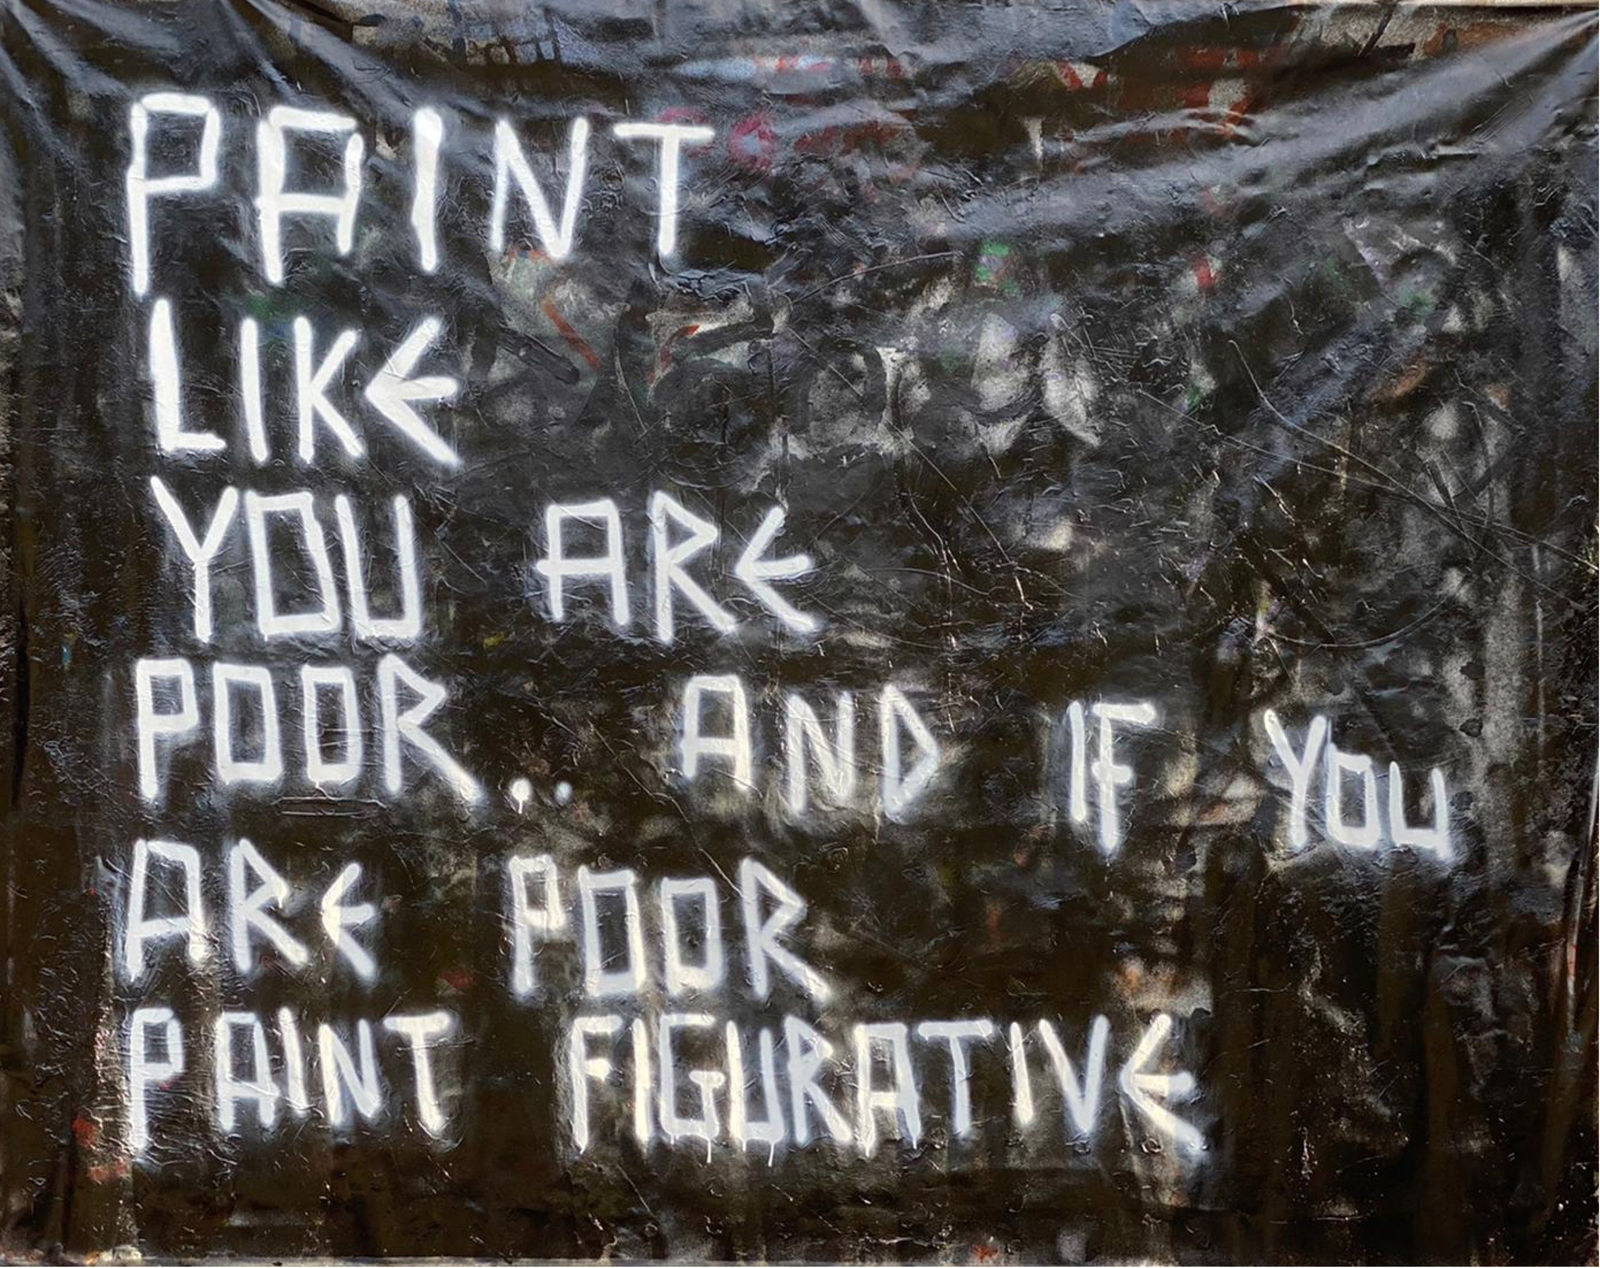 PAINT
LIKE
YOU ARE
POOR.. AND IF YOU
ARE POOR
PAINT FIGURATIVE